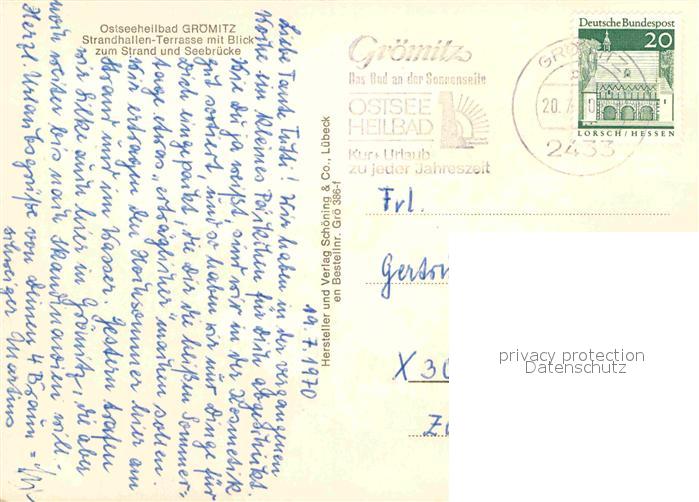 Ostseeheilbad GRÖMITZ
Strandhallen-Terrasse mit Blick
zum Strand und Seebrücke
Grömitz
Das Bad an der Sonnenseite
OSTSEE
HEILBAD
Kur + Urlaub
zu jeder Jahreszeit
GRÖMITZ
20.7.
2433
Deutsche Bundespost
20
LORSCH/HESSEN
Hersteller und Verlag Schöning & Co., Lübeck
en Bestellnr. Grö 386-f
19.7.1970
Liebe Tante Tutti! Wir haben in der vergangenen
Woche ein kleines Päckchen für Dich abgeschickt.
Wie Du ja weißt, sind wir in der Kosmetik
gut sortiert, und so haben wir nur Dinge für
Dich eingepackt, die Dir die heißen Sommer-
tage etwas "erträglicher" machen sollen.
Wir ertragen den Hochsommer hier am
Strand und im Wasser. Gestern trafen
wir Silke auch hier in Grömitz, die aber
noch weiter bis nach Skandinavien will.
Herzl. Urlaubsgrüße von Deinen 4 Braun =
schweiger
Frl.
X 30
privacy protection
Datenschutz